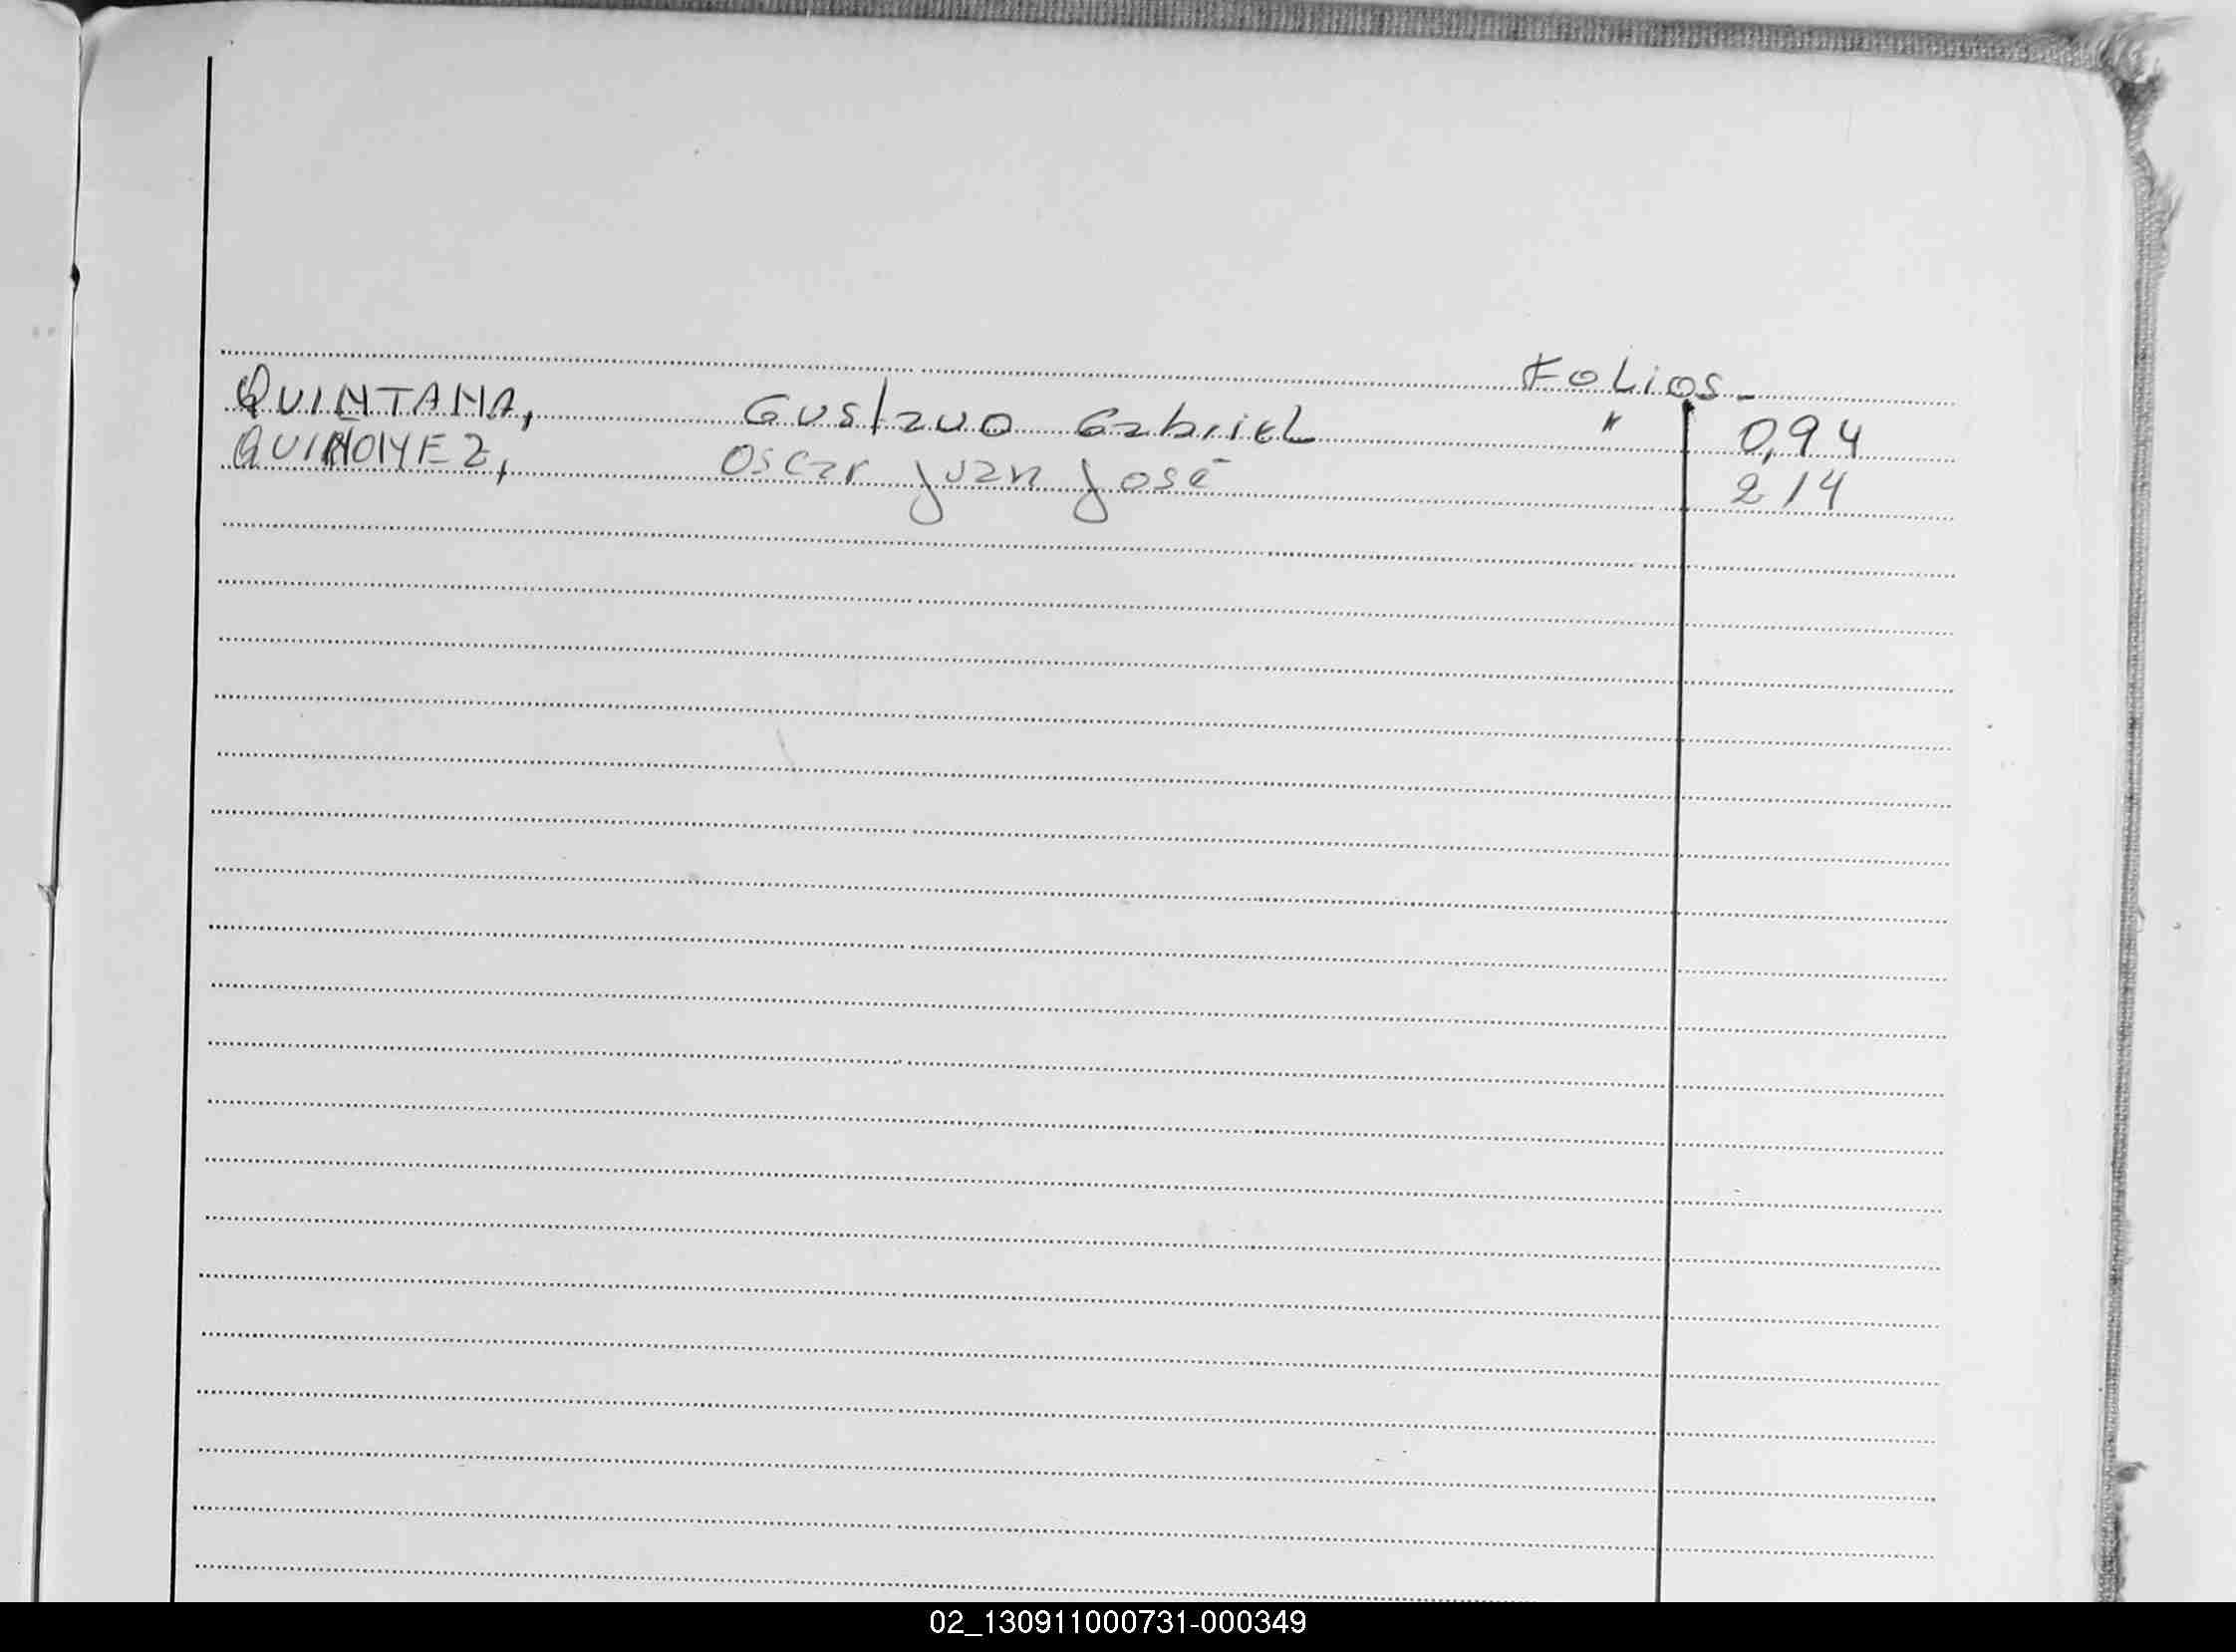 Folios-
QUINTANA, Gustavo Gabriel " 094
QUIÑONEZ, Oscar Juan José 214
02_130911000731-000349